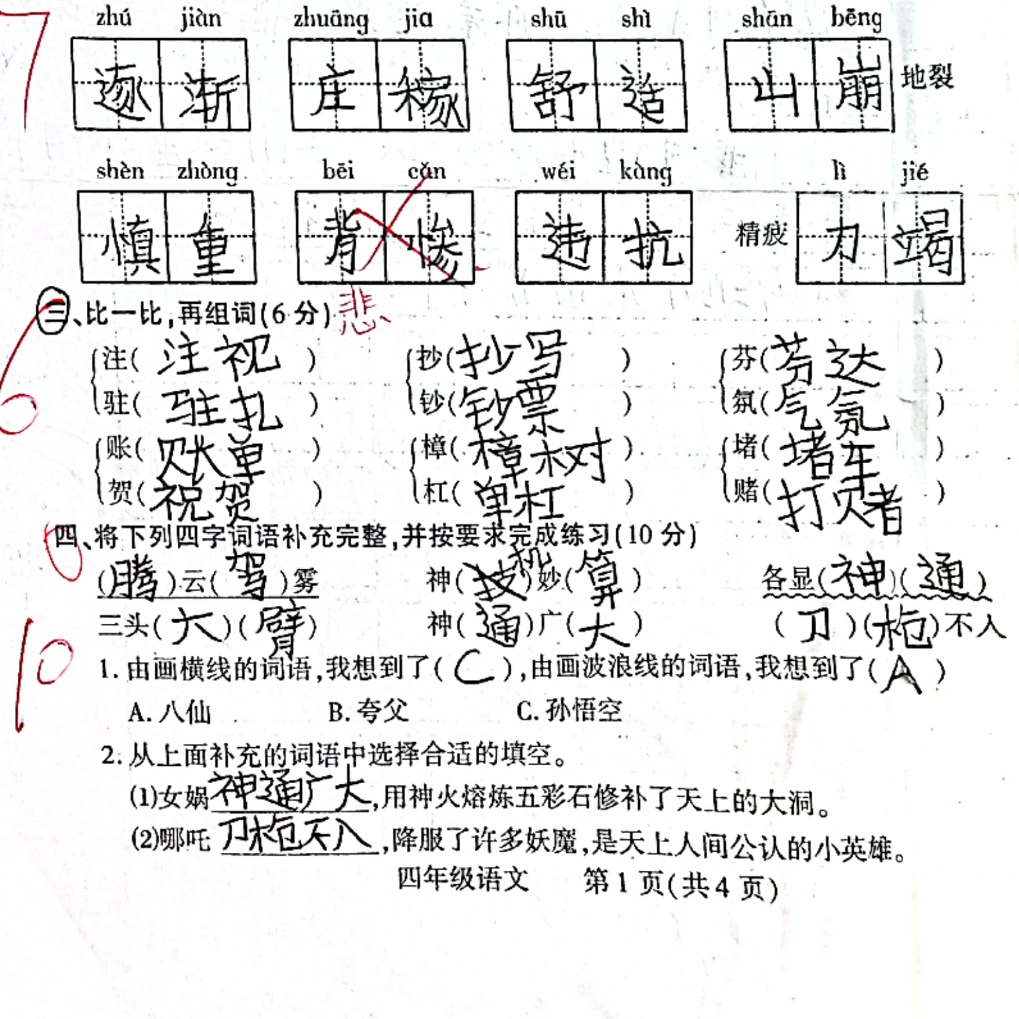 7
zhú jiàn zhuāng jia shū shì shān bēng
逐渐 庄稼 舒适 山崩 地裂
shèn zhòng bēi cǎn wéi kàng lì jié
慎重 背惨 违抗 精疲 力竭
悲
三、比一比,再组词(6分)
6
注(注视) 抄(抄写) 芬(芬达)
驻(驻扎) 钞(钞票) 氛(气氛)
账(账单) 樟(樟木对) 堵(堵车)
贺(祝贺) 杠(单杠) 赌(打赌)
四、将下列四字词语补充完整,并按要求完成练习(10分)
(腾)云(驾)雾 神(机)妙(算) 各显(神)(通)
三头(六)(臂) 神(通)广(大) (刀)(枪)不入
10
1.由画横线的词语,我想到了(C),由画波浪线的词语,我想到了(A)
A.八仙 B.夸父 C.孙悟空
2.从上面补充的词语中选择合适的填空。
(1)女娲神通广大,用神火熔炼五彩石修补了天上的大洞。
(2)哪吒刀枪不入,降服了许多妖魔,是天上人间公认的小英雄。
四年级语文 第1页(共4页)